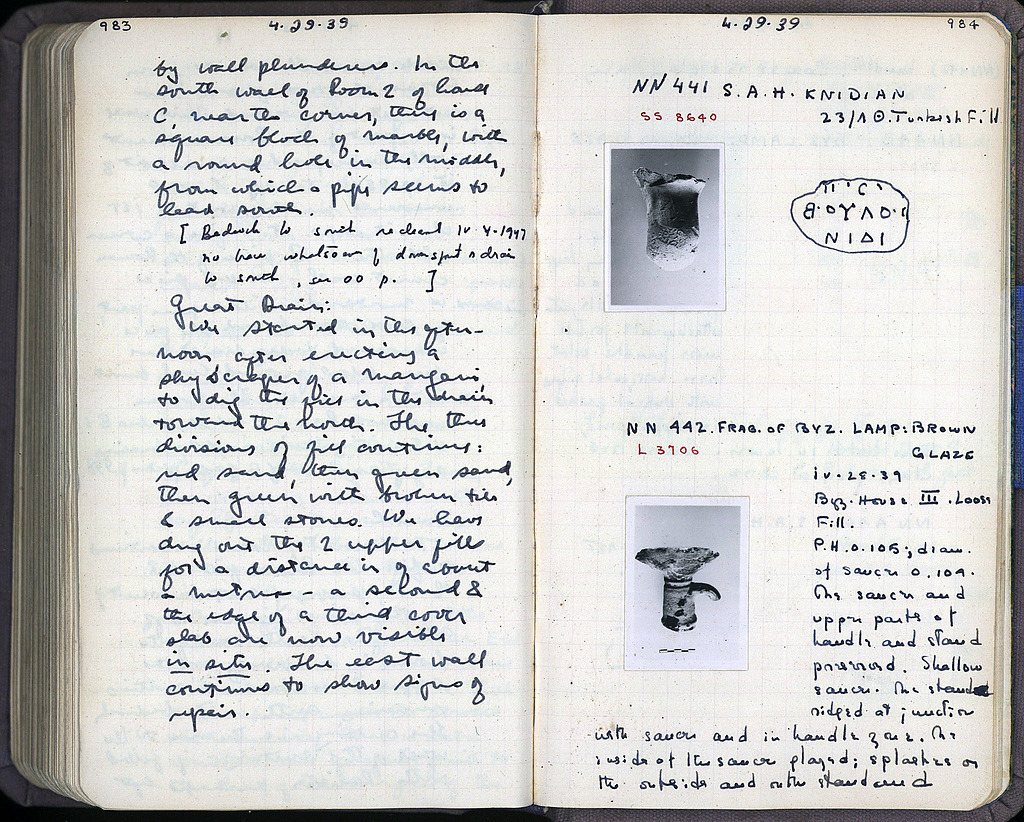 983
4.29.39
by wall plunderers. In the
south wall of Room 2 of house
C, near the corner, there is a
square block of marble, with
a round hole in the middle,
from which a pipe seems to
lead south.
[ to south recleaned IV.4.1947
no trace whatsoever of drain
to south, see OO p. ]
Great Drain:
We started in the after-
noon after erecting a
skyscraper of a mangani,
to dig the fill in the drain
toward the north. The three
divisions of fill continue:
red sand, then green sand,
then green with broken tiles
& small stones. We have
dug out the 2 upper fills
for a distance of about
a metre - a second &
the edge of a third cover
slab are now visible
in situ. The east wall
continues to show signs of
repair.
4.29.39
984
NN 441 S.A.H. KNIDIAN
SS 8640
23/1Θ. Turkish Fill
ΒΟΥΛΟ
ΝΙΔΙ
NN 442. FRAG. OF BYZ. LAMP: BROWN
GLAZE
L 3706
IV.28.39
Byz. House III. Loose
Fill.
P.H. 0.105; diam.
of saucer 0.109.
The saucer and
upper parts of
handle and stand
preserved. Shallow
saucer. The stand
ridged at junction
with saucer and in handle zone. The
inside of the saucer glazed; splashes on
the outside and on the stand and